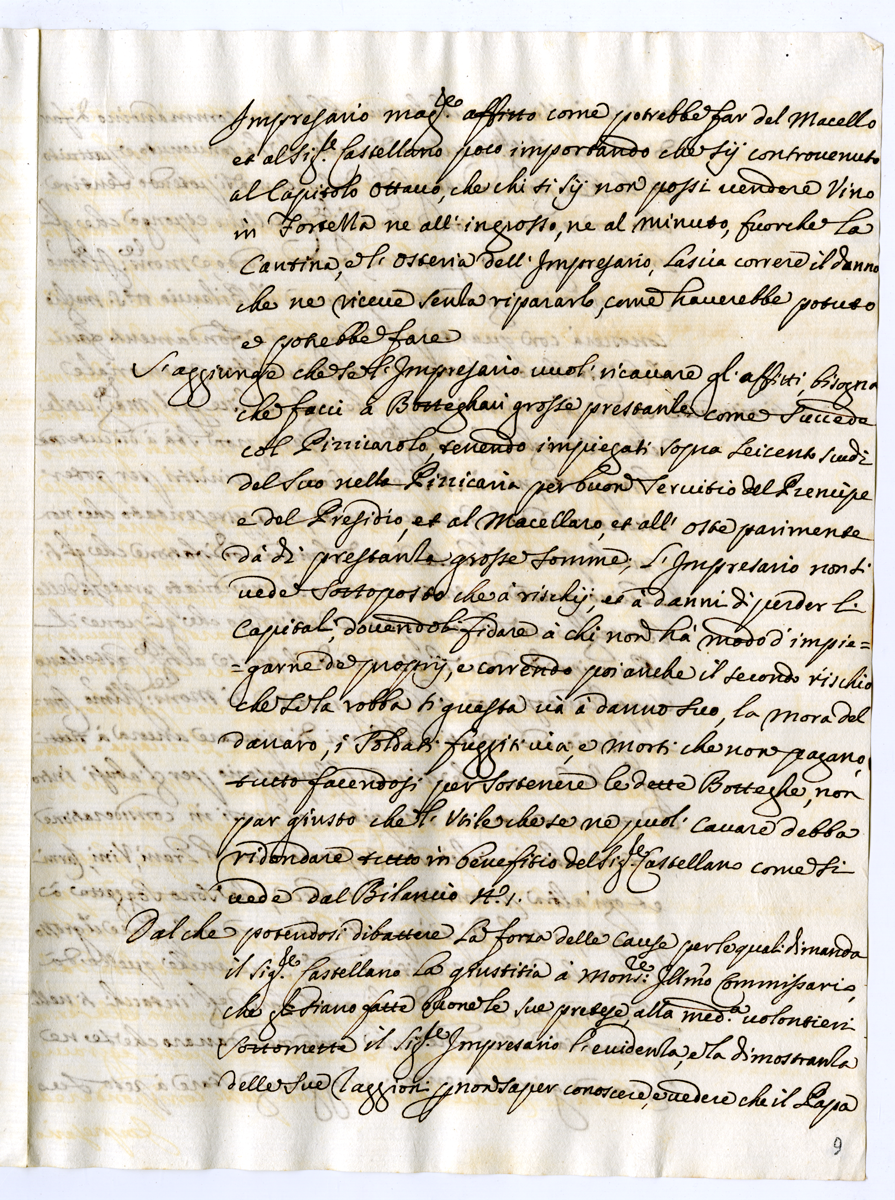 Impresario mag.re affitto come potrebbe far del Macello
et al Sig.re Castellano poco importando che sij controvenuto
al Capitolo Ottavo, che chi si sij non possi vendere Vino
in Fortezza ne all' ingrosso, ne al minuto, fuorche la
Cantina, e l' Osteria dell' Impresario, lascia correre il danno
che ne riceve senza ripararlo, come haverebbe potuto
e potrebbe fare
S' aggiunge che se l' Impresario vuol' ricavare gl' affitti bisogna
che facci à Botteghari grosse prestanze come succede
col Pizzicarolo tenendo impiegati sopra seicento scudi
del suo nella Pizzicaria per buon servitio del Prencipe
e del Presidio, et al Macellaro, et all' Oste parimente
dà di prestanza grosse somme; L' Impresario non si
vede sottoposto che à rischij, et à danni di perder li
Capitali, dovendoli fidare à chi non hà modo d' impie=
=garne de proprij, e correndo poi anche il secondo rischio
che se la robba si guasta và à danno suo, la mora del
danaro, i Soldati fuggiti via, e Morti che non pagano,
tutto facendosi per sostenere le dette Botteghe, non
par giusto che l' Utile che se ne puol' cavare debba
ridondare tutto in benefitio del Sig.re Castellano come si
vede dal Bilancio N.o 1.
Dal che potendosi dibattere la forza delle cause per le quali dimanda
il Sig.re Castellano la giustitia à Mons.re Ill.mo Commissario,
che gli siano fatte buone le sue pretese, alla med.a volontieri
sottomette il Sig.re Impresario l' evidenza, e la dimostranza
delle sue raggioni non saper conoscere, e vedere che il Papa
9